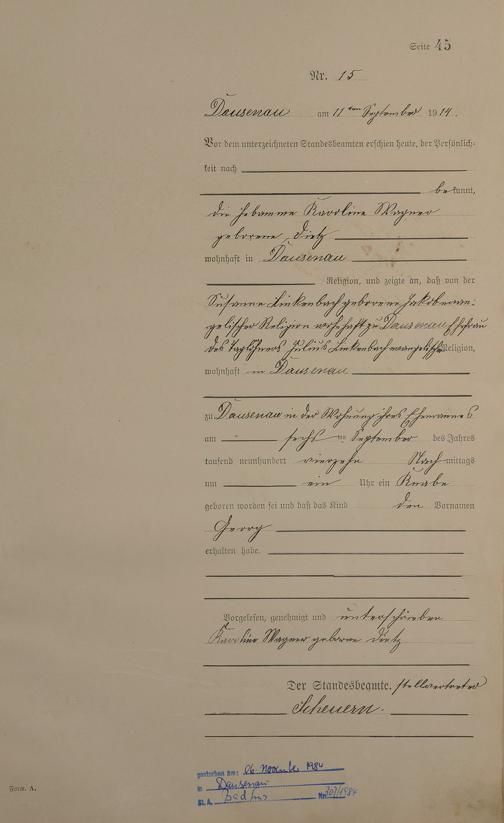 Seite 45
Nr. 15
Dausenau am 11ten September 1914.
Vor dem unterzeichneten Standesbeamten erschien heute, der Persönlich-
keit nach
bekannt,
die Hebamme Karoline Wagner
geborene Dietz
wohnhaft in Dausenau
Religion, und zeigte an, daß von der
Susanne Linkenbach geborene Jakob evan-
gelischer Religion wohnhaft zu Dausenau Ehefrau
des Taglöhners Julius Linkenbach evangelischer Religion,
wohnhaft in Dausenau
zu Dausenau in der Wohnung ihres Ehemannes
am sechs ten September des Jahres
tausend neunhundert vierzehn Nachmittags
um ein Uhr ein Knabe
geboren worden sei und daß das Kind den Vornamen
Georg
erhalten habe.
Vorgelesen, genehmigt und unterschrieben
Karoline Wagner geborne Dietz
Der Standesbeamte. stellvertreter
Scheuern.
gestorben am: 06. November 1984
in Dausenau
St. A. Bad Ems Nr. 307/1984
Form. A.